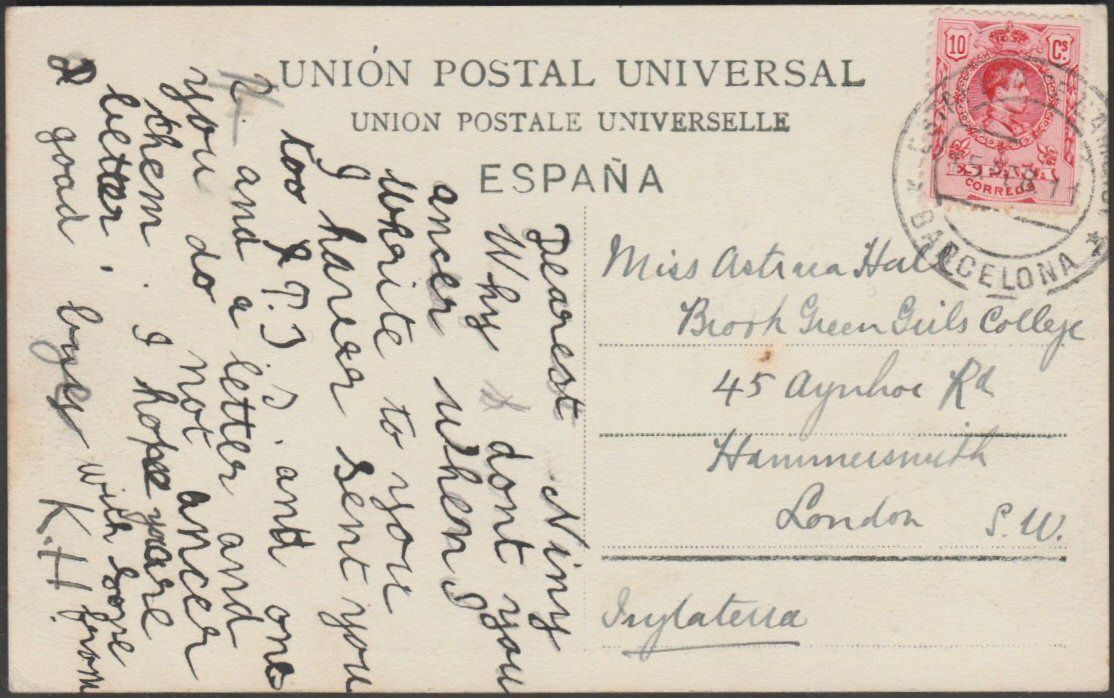 UNIÓN POSTAL UNIVERSAL
UNION POSTALE UNIVERSELLE
ESPAÑA
10 Cs
ESPAÑA
CORREOS
BARCELONA
Miss Astraea Hall
Brook Green Girls College
45 Aynhoe Rd
Hammersmith
London S.W.
Inglaterra
Dearest Niny
Why dont you
ancer when I
Wharite to you
I haver sent you
too P.P. and one
and a letter and
you do not ancer
them. I hope youare
better. with love from
good byes K.H